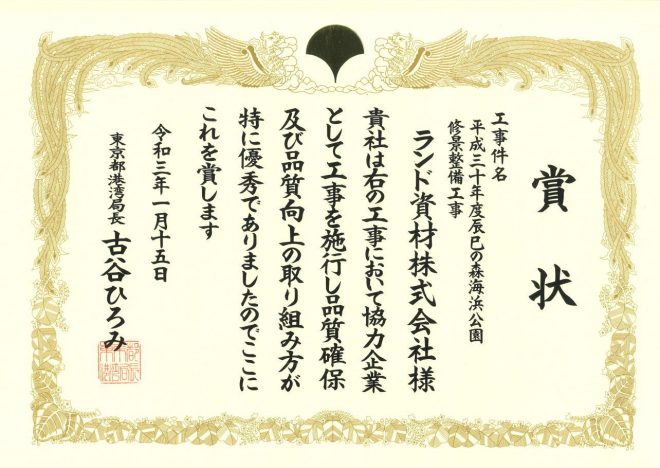 賞状
工事件名
平成三十年度辰巳の森海浜公園
修景整備工事
ランド資材株式会社様
貴社は右の工事において協力企業
として工事を施行し品質確保
及び品質向上の取り組み方が
特に優秀でありましたのでここに
これを賞します
令和三年一月十五日
東京都港湾局長 古谷ひろみ